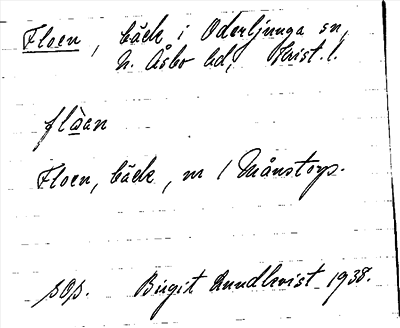 Floen, bäck i Oderljunga sn,
N. Åsbo hd, Krist. l.
flåen
Floen, bäck, m / Månstorp.
sOp. Birgit Rundkvist 1938.